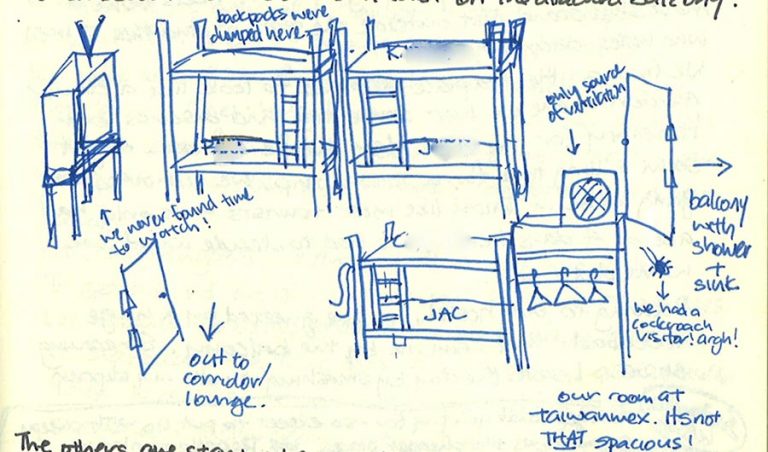 backpacks were
dumped here.
K
only source
of ventilation
P
J
we never found time
to watch!
balcony
with
shower
+
sink
C
JAC
we had a
cockroach
visitor! argh!
out to
corridor/
lounge.
our room at
taiwanmex. It's not
THAT spacious!
The others are